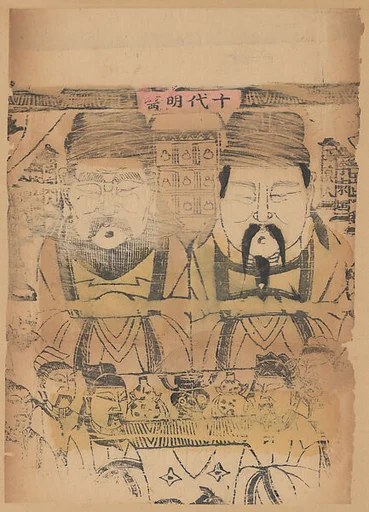 十代明醫